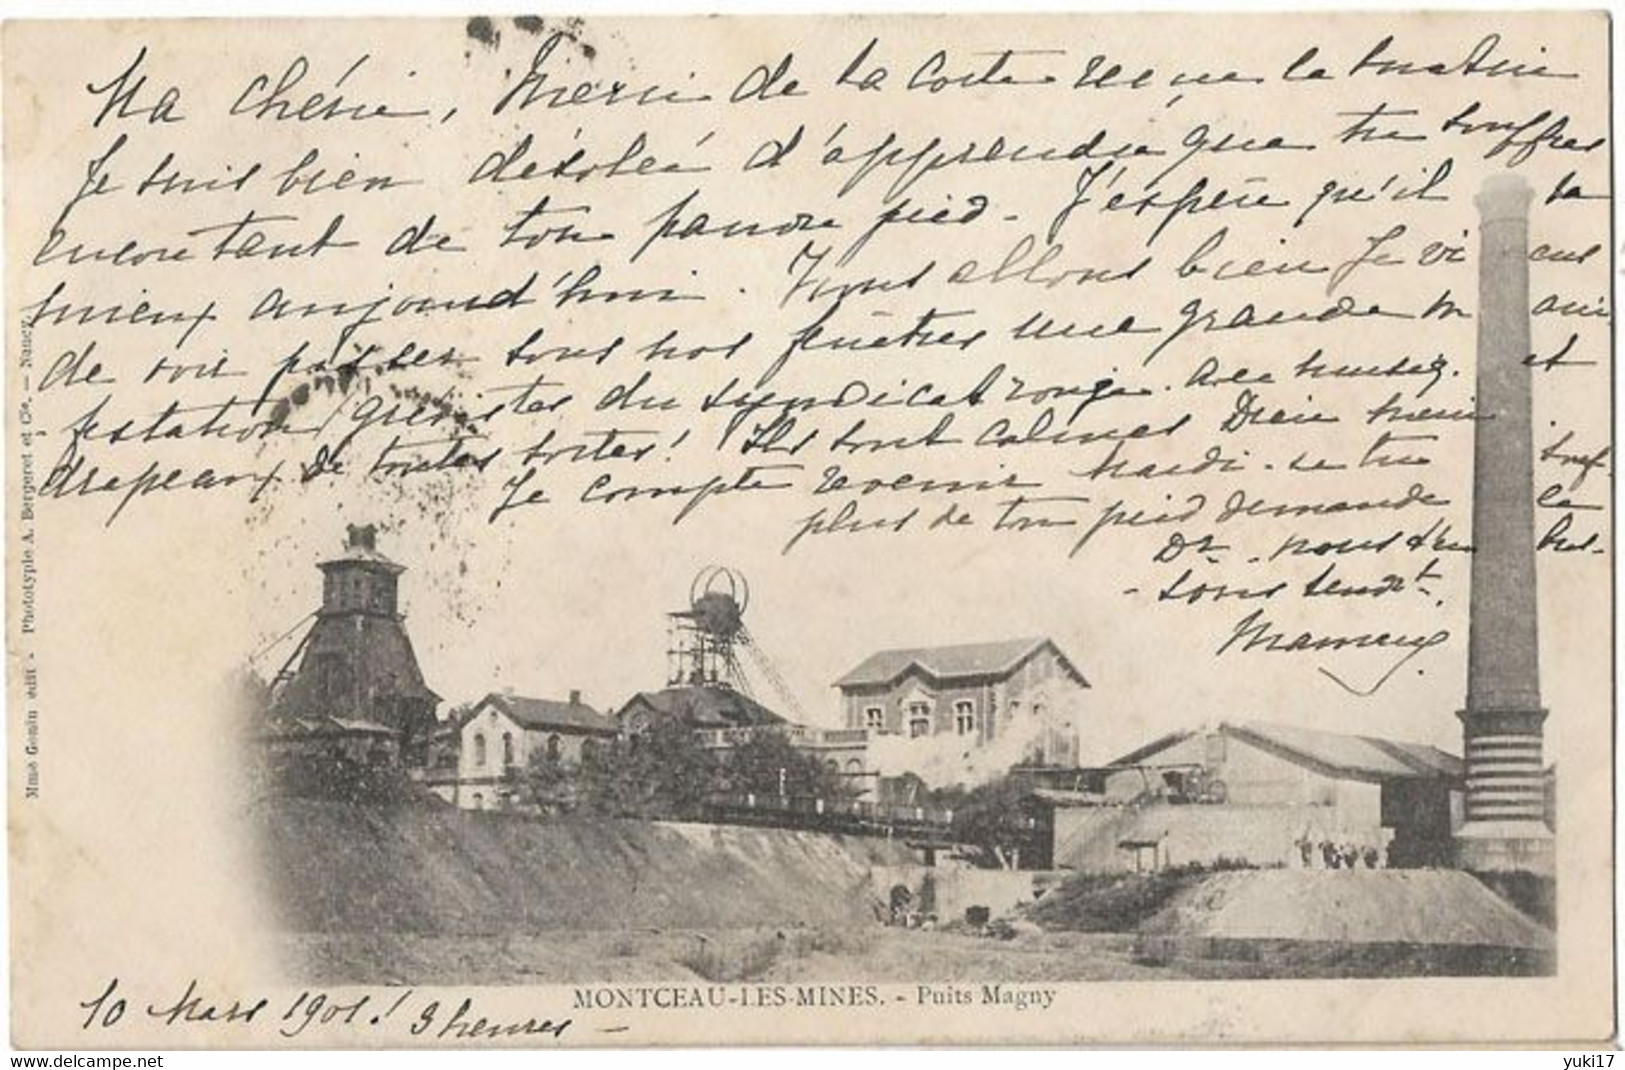 Ma chérie, Merci de ta carte reçue ce matin
Je suis bien désolée d'apprendre que tu souffres
encore tant de ton pauvre pied - J'espère qu'il va
mieux aujourd'hui. Nous allons bien Je viens
de voir passer sous nos fenêtres une grande mani
festation grévistes du syndicat rouge. avec musiq. et
drapeaux de toutes sortes! Ils sont calmes Dieu merci
Je compte revenir Mardi - si tu souf-
plus de ton pied demande le
Dr. nous t'em bras-
- sons tendrt.
10 Mars 1901! 9 heures -
MONTCEAU-LES-MINES. - Puits Magny
Mme Gomin édit - Phototypie A. Bergeret et Cie. - Nancy
https://www.delcampe.net
yuki17